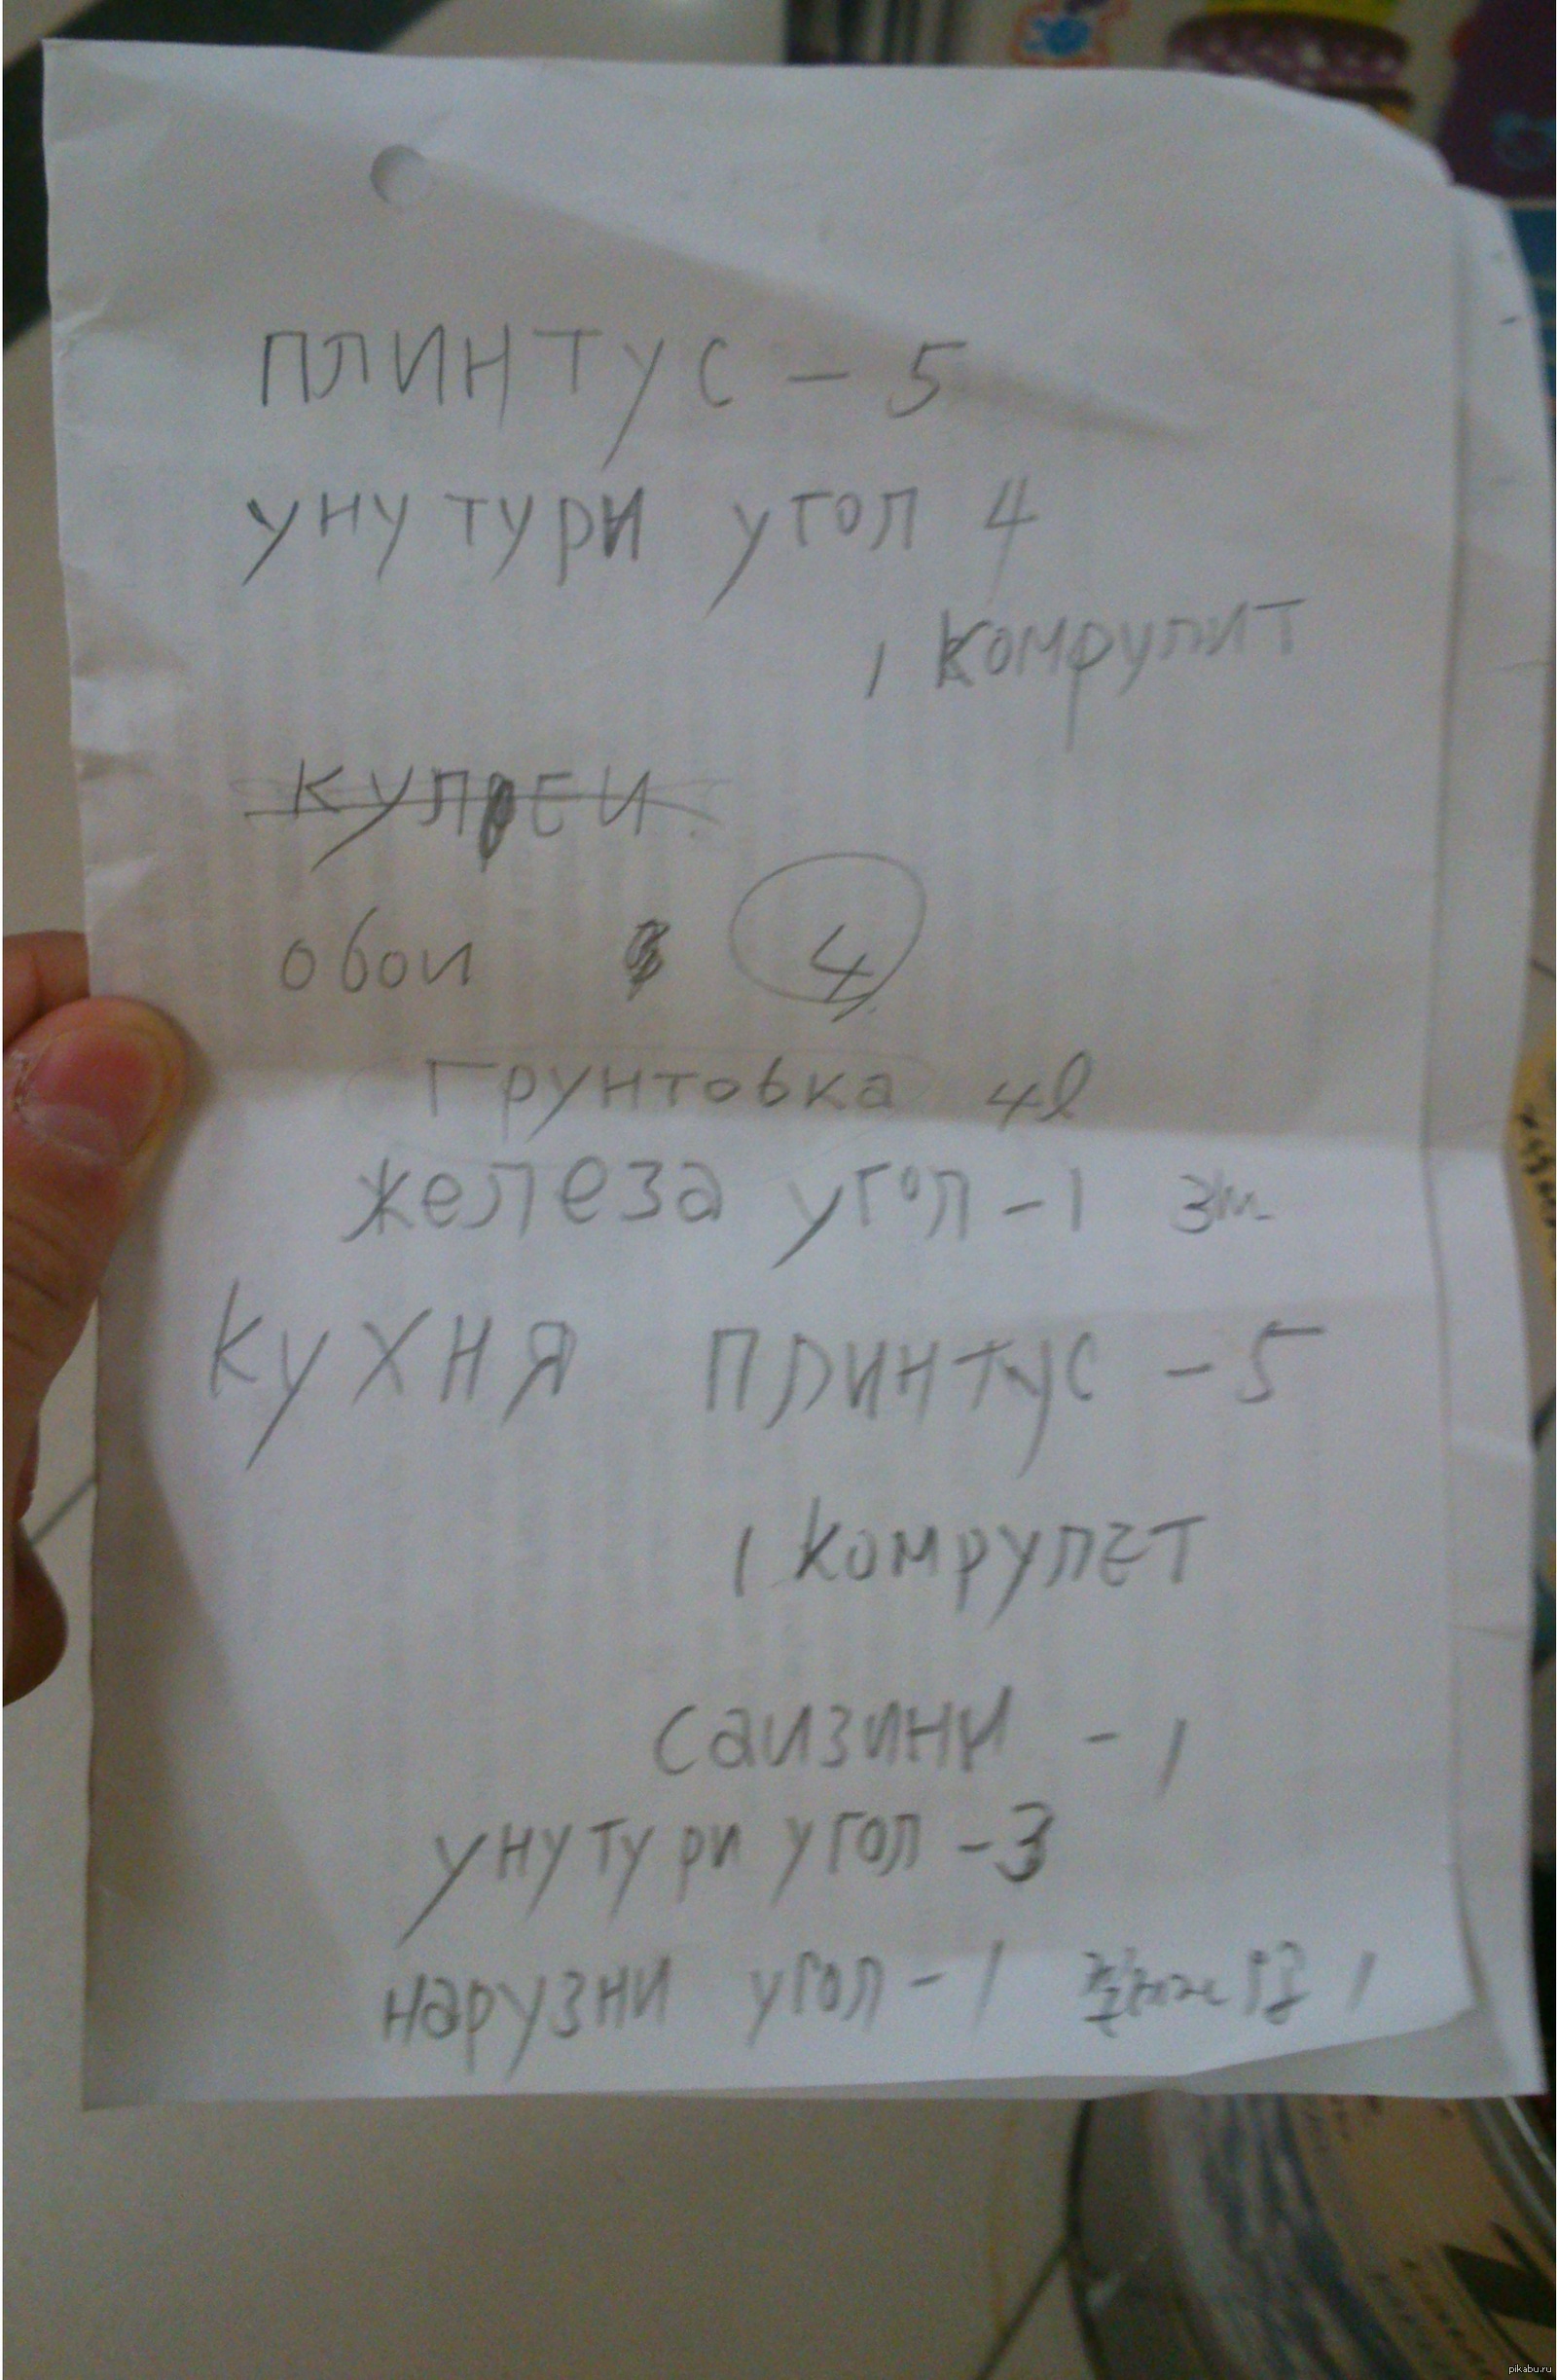 плинтус - 5
унутури угол 4
1 комрулит
кулреи
обои 4
грунтовка 4l
железа угол - 1 3m
кухня плинтус - 5
1 комрулет
саизини - 1
унутури угол - 3
нарузни угол - 1
pikabu.ru